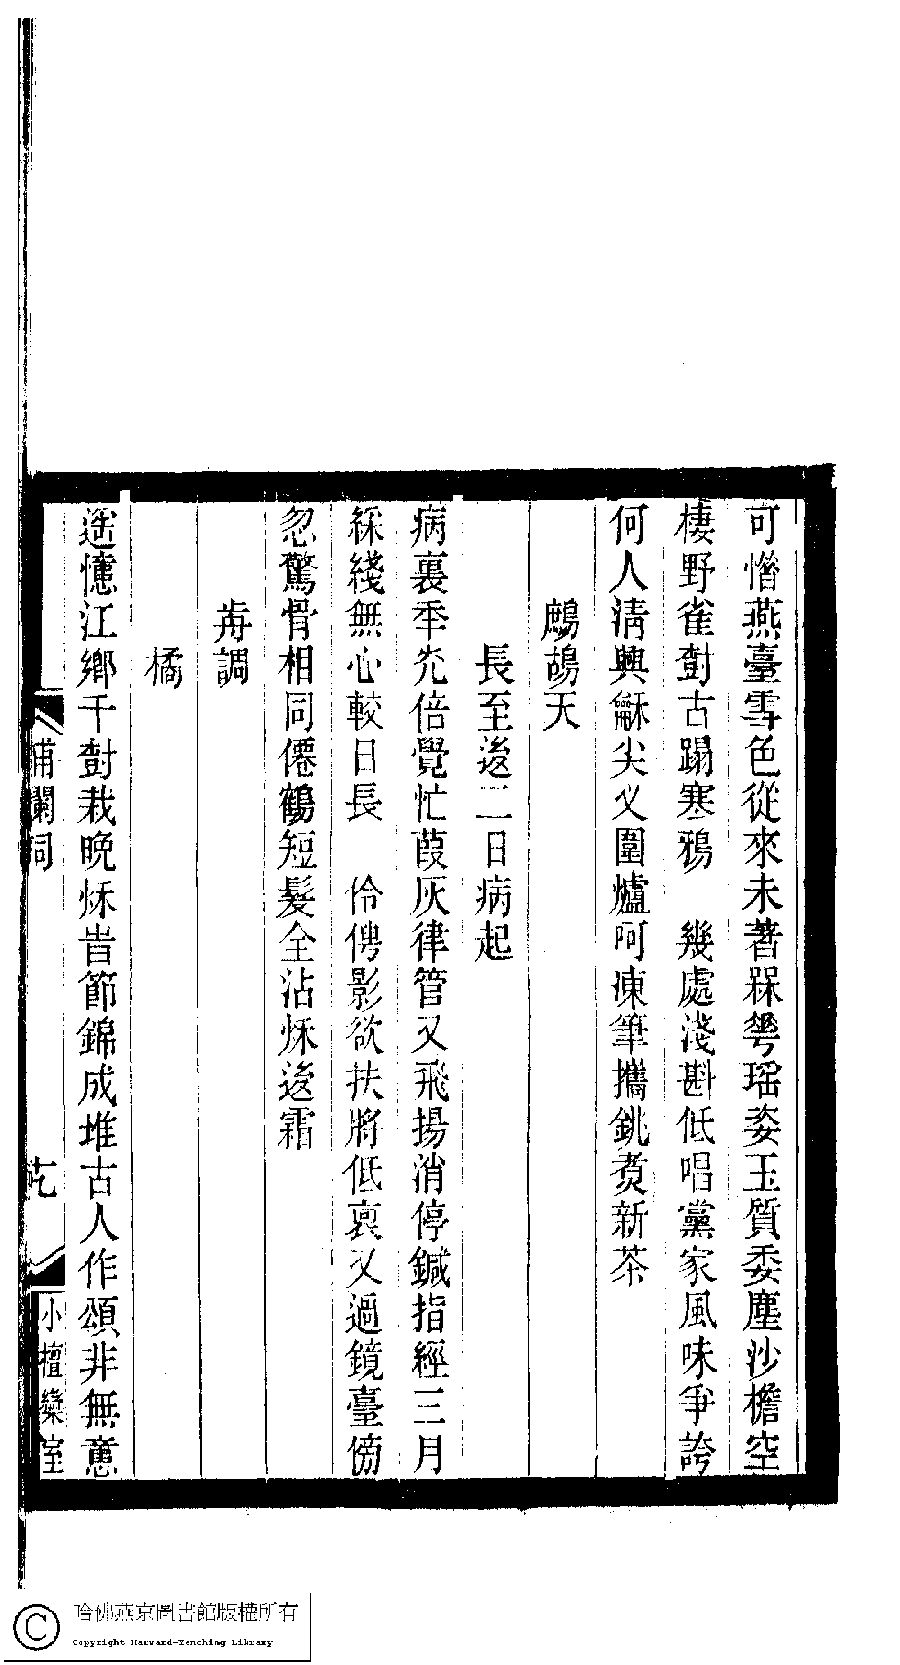 可惜燕臺雪色從來未著槑䔢瑶姿玉質委塵沙檐空
棲野雀對古蹋寒鴉　幾處淺斟低唱黨家風味爭誇
何人淸興龢尖叉圍爐呵凍筆攜銚煑新茶
鷓鴣天
長至後二日病起
病裏秊光倍覺忙葭灰律管又飛揚消停鍼指經三月
綵綫無心較日長　伶俜影欲扶將低裒又過鏡臺傍
忽驚骨相同僊鶴短髮全沾秌後霜
再調
橘
遥憶江鄉千對栽晚秌旹節錦成堆古人作頌非無意
小檀欒室
哈佛燕京圖書館版權所有
Copyright Harvard-Yenching Library